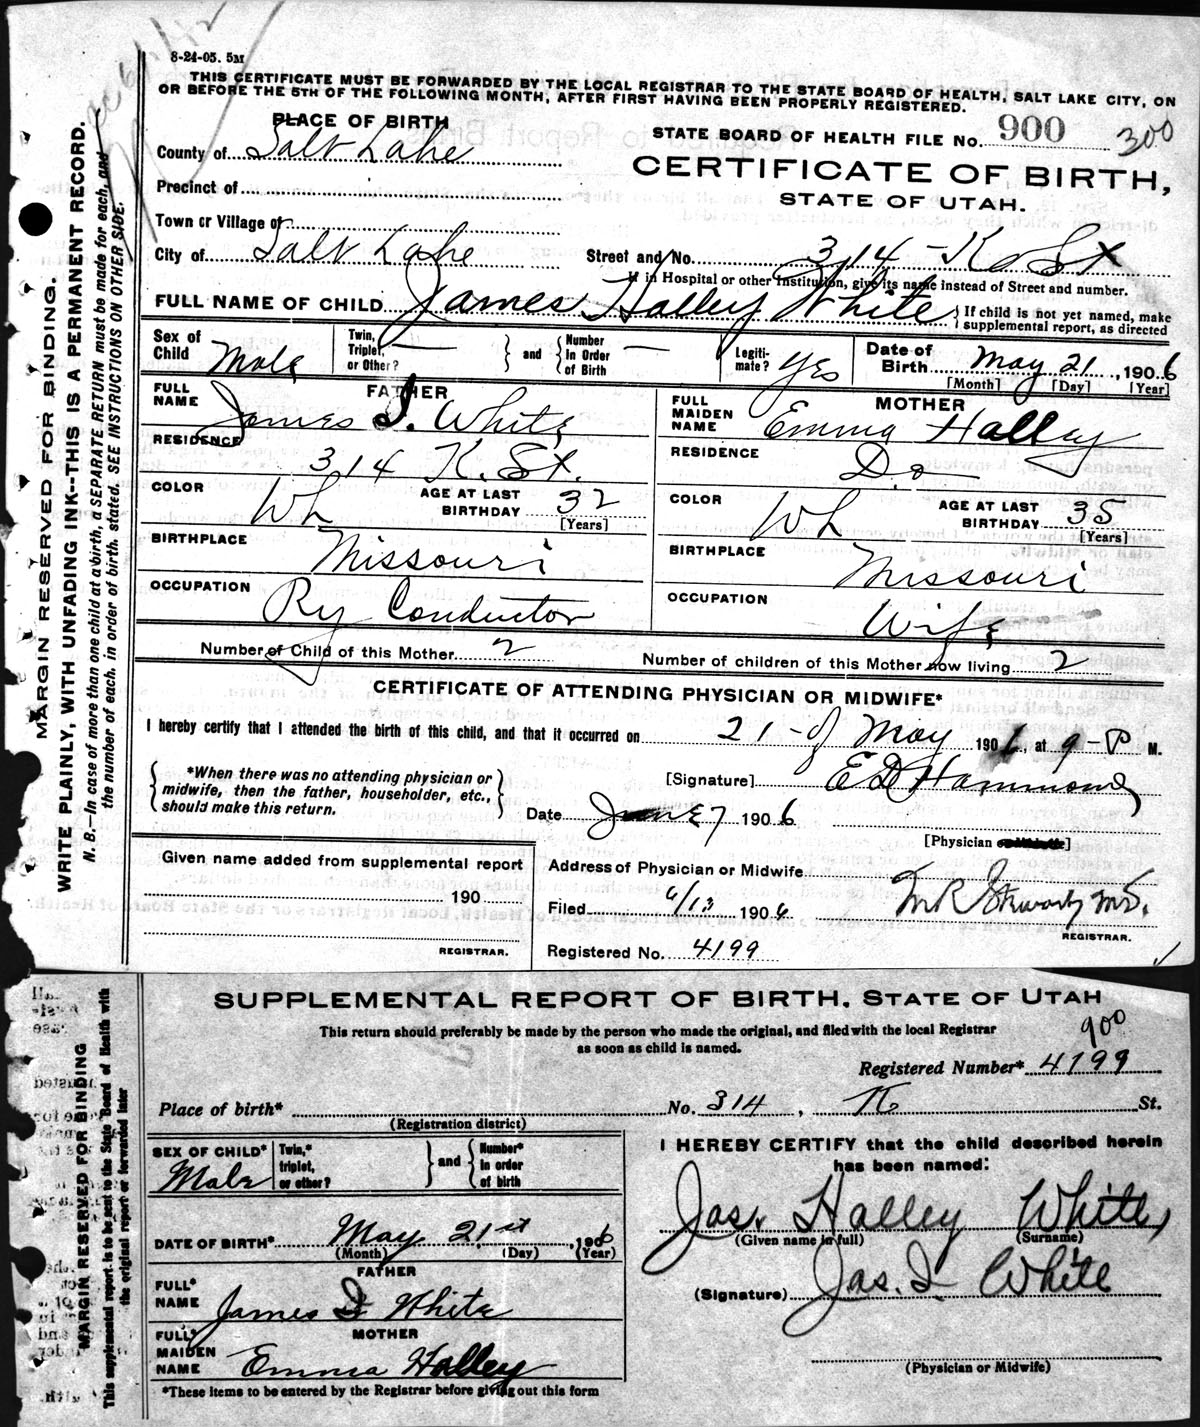 8-24-05. 5M
THIS CERTIFICATE MUST BE FORWARDED BY THE LOCAL REGISTRAR TO THE STATE BOARD OF HEALTH, SALT LAKE CITY, ON
OR BEFORE THE 5TH OF THE FOLLOWING MONTH, AFTER FIRST HAVING BEEN PROPERLY REGISTERED.
PLACE OF BIRTH
STATE BOARD OF HEALTH FILE No. 900 300
County of Salt Lake
CERTIFICATE OF BIRTH,
STATE OF UTAH.
Precinct of
Town or Village of
City of Salt Lake
Street and No. 314 - K St
If in Hospital or other Institution, give its name instead of Street and number.
FULL NAME OF CHILD James Halley White
{ If child is not yet named, make supplemental report, as directed
Sex of Child Male
Twin, Triplet, or Other? —
} and {
Number in Order of Birth —
Legitimate? Yes
Date of Birth May 21, 1906
[Month] [Day] [Year]
FATHER
FULL NAME James I. White
RESIDENCE 314 K. St.
COLOR Wh
AGE AT LAST BIRTHDAY 32
[Years]
BIRTHPLACE Missouri
OCCUPATION Ry Conductor
MOTHER
FULL MAIDEN NAME Emma Halley
RESIDENCE Do
COLOR Wh
AGE AT LAST BIRTHDAY 35
[Years]
BIRTHPLACE Missouri
OCCUPATION Wife
Number of Child of this Mother 2
Number of children of this Mother now living 2
CERTIFICATE OF ATTENDING PHYSICIAN OR MIDWIFE*
I hereby certify that I attended the birth of this child, and that it occurred on 21 - of May 1906, at 9 - P M.
{ *When there was no attending physician or midwife, then the father, householder, etc., should make this return. }
[Signature] E D Hammond
Date June 7 1906
[Physician or Midwife]
Given name added from supplemental report
190
REGISTRAR.
Address of Physician or Midwife
Filed 6/13 1906
M.D.
REGISTRAR.
Registered No. 4199
MARGIN RESERVED FOR BINDING.
WRITE PLAINLY, WITH UNFADING INK--THIS IS A PERMANENT RECORD.
N. B.—In case of more than one child at a birth, a SEPARATE RETURN must be made for each, and
the number of each, in order of birth, stated. SEE INSTRUCTIONS ON OTHER SIDE.
SUPPLEMENTAL REPORT OF BIRTH, STATE OF UTAH
This return should preferably be made by the person who made the original, and filed with the local Registrar
as soon as child is named.
900
Registered Number* 4199
Place of birth* No. 314, K St.
(Registration district)
SEX OF CHILD* Male
Twin,* triplet, or other?
} and {
Number* in order of birth
DATE OF BIRTH* May 21st, 1906
(Month) (Day) (Year)
FATHER
FULL* NAME James I White
MOTHER
FULL* MAIDEN NAME Emma Halley
*These items to be entered by the Registrar before giving out this form
I HEREBY CERTIFY that the child described herein
has been named:
Jas. Halley White,
(Given name in full) (Surname)
(Signature) Jas. I White
(Physician or Midwife)
MARGIN RESERVED FOR BINDING
This supplemental report is to be sent to the State Board of Health with
the original report or forwarded later